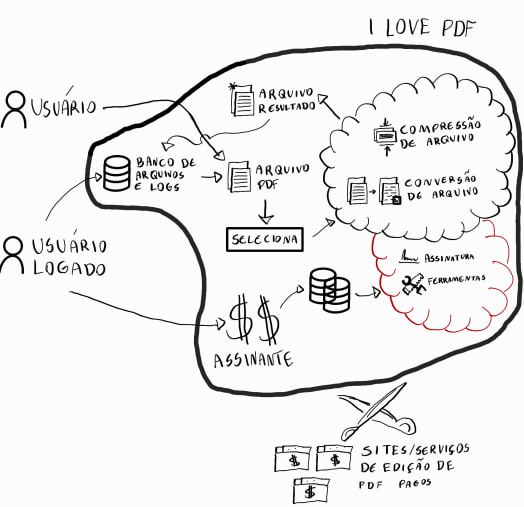 I LOVE PDF
ARQUIVO
RESULTADO
USUÁRIO
COMPRESSÃO
DE ARQUIVO
BANCO DE
ARQUIVOS
E LOGS
ARQUIVO
PDF
CONVERSÃO
DE ARQUIVO
SELECIONA
USUÁRIO
LOGADO
ASSINATURA
FERRAMENTAS
$ $
ASSINANTE
$ $
$
SITES/SERVIÇOS
DE EDIÇÃO DE
PDF PAGOS